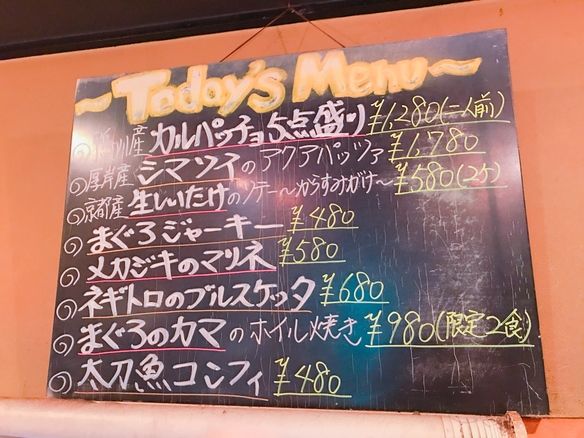 ~Today's Menu~
産 カルパッチョ5点盛り ¥1,280(二人前)
厚岸産 シマソイのアクアパッツァ ¥1,780
京都産 生しいたけのソテー~からすみがけ~ ¥580(2ケ)
まぐろジャーキー ¥480
メカジキのマリネ ¥580
ネギトロのブルスケッタ ¥680
まぐろのカマのホイル焼き ¥980(限定2食)
太刀魚コンフィ ¥480